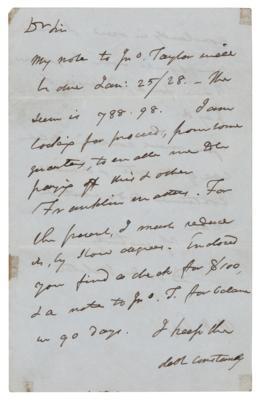 Dr Sir
My note to Jno Taylor will
be due Jan: 25/28. - The
sum is 788.98. I am
looking for proceeds, from some
quarter, to enable me to
pay off this & other
Franklin matters. For
the present, I must reduce
it, by slow degrees. Enclosed
you find a check for $100,
& a note to Jno. T. for balance
in 90 days. I keep the
debt constantly